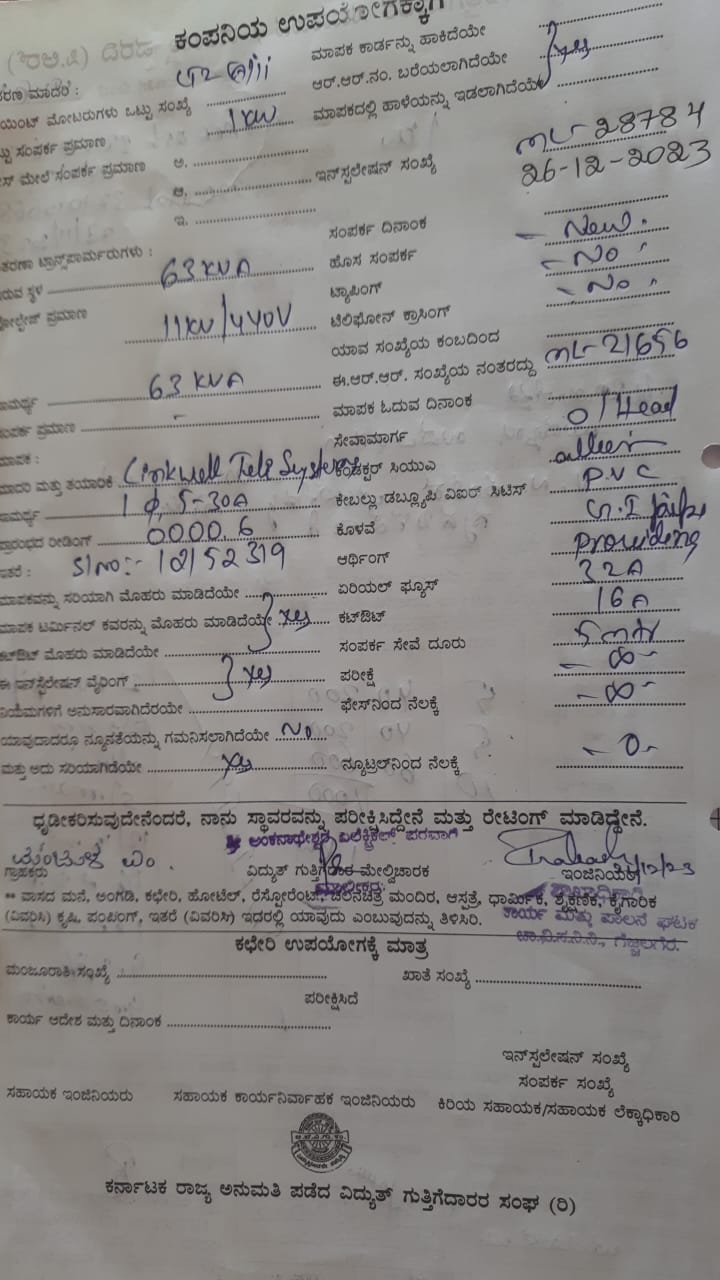 ಕಂಪನಿಯ ಉಪಯೋಗಕ್ಕಾಗಿ
ಮಾಪಕ ಕಾರ್ಡನ್ನು ಹಾಕಿದೆಯೇ
ಆರ್.ಆರ್.ನಂ. ಬರೆಯಲಾಗಿದೆಯೇ } yes
ಯಿಂಟ್ ಮೋಟರುಗಳು ಒಟ್ಟು ಸಂಖ್ಯೆ
ಮಾಪಕದಲ್ಲಿ ಹಾಳೆಯನ್ನು ಇಡಲಾಗಿದೆಯೇ
ಸಂಪರ್ಕ ಪ್ರಮಾಣ 1 KW
ಮೇಲೆ ಸಂಪರ್ಕ ಪ್ರಮಾಣ ಅ.
ಆ. ಇನ್‌ಸ್ಟಲೇಷನ್ ಸಂಖ್ಯೆ ML-28784
26-12-2023
ಇ.
ಸಂಪರ್ಕ ದಿನಾಂಕ
ತರಣಾ ಟ್ರಾನ್ಸ್‌ಫಾರ್ಮರುಗಳು :
ಹೊಸ ಸಂಪರ್ಕ - New.
ಸ್ಥಳ 63 KVA ಟ್ಯಾಪಿಂಗ್ - No
ಪ್ರಮಾಣ 11KV/440V ಟೆಲಿಫೋನ್ ಕ್ರಾಸಿಂಗ್ - No
ಯಾವ ಸಂಖ್ಯೆಯ ಕಂಬದಿಂದ
63 KVA ಈ.ಆರ್.ಆರ್. ಸಂಖ್ಯೆಯ ನಂತರದ್ದು ML-21656
ಪ್ರಮಾಣ - ಮಾಪಕ ಓದುವ ದಿನಾಂಕ
ಮಾಪಕ : ಸೇವಾಮಾರ್ಗ O/Head
ಮಾದರಿ ಮತ್ತು ತಯಾರಿಕೆ Linkwell Tele Systems ಕಂಡಕ್ಟರ್ ಸಿಯುಎ
1 ϕ, 5-30A ಕೇಬಲ್ಲು ಡಬ್ಲ್ಯೂಪಿ ವಿಐರ್ ಸಿಟಿಸ್ P.V.C
ಪ್ರಾರಂಭದ ರೀಡಿಂಗ್ 0000.6 ಕೊಳವೆ G.I pipe
ಇತರೆ : Sl No:- 12152319 ಆರ್ಥಿಂಗ್ Providing
ಮಾಪಕವನ್ನು ಸರಿಯಾಗಿ ಮೊಹರು ಮಾಡಿದೆಯೇ ಏರಿಯಲ್ ಫ್ಯೂಸ್ 32A
ಮಾಪಕ ಟರ್ಮಿನಲ್ ಕವರನ್ನು ಮೊಹರು ಮಾಡಿದೆಯೇ } yes ಕಟ್‌ಔಟ್ 16A
ಕಟ್‌ಔಟ್ ಮೊಹರು ಮಾಡಿದೆಯೇ ಸಂಪರ್ಕ ಸೇವೆ ದೂರು 5 mtr
ಈ ಇನ್‌ಸ್ಟಲೇಷನ್ ವೈರಿಂಗ್ } yes ಪರೀಕ್ಷೆ - ∞ -
ನಿಯಮಗಳಿಗೆ ಅನುಸಾರವಾಗಿದೆರಯೇ ಫೇಸ್‌ನಿಂದ ನೆಲಕ್ಕೆ - ∞ -
ಯಾವುದಾದರೂ ನ್ಯೂನತೆಯನ್ನು ಗಮನಿಸಲಾಗಿದೆಯೇ No
ಮತ್ತು ಅದು ಸರಿಯಾಗಿಡೆಯೇ yes ನ್ಯೂಟ್ರಲ್‌ನಿಂದ ನೆಲಕ್ಕೆ - 0 -
ಧೃಡೀಕರಿಸುವುದೇನೆಂದರೆ, ನಾನು ಸ್ಥಾವರವನ್ನು ಪರೀಕ್ಷಿಸಿದ್ದೇನೆ ಮತ್ತು ರೇಟಿಂಗ್ ಮಾಡಿದ್ದೇನೆ.
ಅಂಕನಾಥೇಶ್ವರ ಎಲೆಕ್ಟ್ರಿಕಲ್ ಪರವಾಗಿ
ಮಂಜುಳ ಎಂ.
ಗ್ರಾಹಕರು ವಿದ್ಯುತ್ ಗುತ್ತಿಗೆದಾರ ಮೇಲ್ವಿಚಾರಕ ಇಂಜಿನಿಯರ್
ಮಾಲೀಕರು
** ವಾಸದ ಮನೆ, ಅಂಗಡಿ, ಕಛೇರಿ, ಹೋಟೆಲ್, ರೆಸ್ಟೋರೆಂಟ್, ಚಲನಚಿತ್ರ ಮಂದಿರ, ಆಸ್ಪತ್ರೆ, ಧಾರ್ಮಿಕ, ಶೈಕ್ಷಣಿಕ, ಕೈಗಾರಿಕ
(ವಿವರಿಸಿ) ಕೃಷಿ, ಪಂಪಿಂಗ್, ಇತರೆ (ವಿವರಿಸಿ) ಇಧರಲ್ಲಿ ಯಾವುದು ಎಂಬುವುದನ್ನು ತಿಳಿಸಿರಿ. ಕಾರ್ಯ ಮತ್ತು ಪಾಲನೆ ಘಟಕ
ಚಾ.ವಿ.ಸ.ನಿ.ನಿ.,
ಕಛೇರಿ ಉಪಯೋಗಕ್ಕೆ ಮಾತ್ರ
ಮಂಜೂರಾತಿ ಸಂಖ್ಯೆ ಖಾತೆ ಸಂಖ್ಯೆ
ಪರೀಕ್ಷಿಸಿದೆ
ಕಾರ್ಯ ಆದೇಶ ಮತ್ತು ದಿನಾಂಕ
ಇನ್‌ಸ್ಟಲೇಷನ್ ಸಂಖ್ಯೆ
ಸಂಪರ್ಕ ಸಂಖ್ಯೆ
ಸಹಾಯಕ ಇಂಜಿನಿಯರು ಸಹಾಯಕ ಕಾರ್ಯನಿರ್ವಾಹಕ ಇಂಜಿನಿಯರು ಕಿರಿಯ ಸಹಾಯಕ/ಸಹಾಯಕ ಲೆಕ್ಕಾಧಿಕಾರಿ
ಕರ್ನಾಟಕ ರಾಜ್ಯ ಅನುಮತಿ ಪಡೆದ ವಿದ್ಯುತ್ ಗುತ್ತಿಗೆದಾರರ ಸಂಘ (ರಿ)